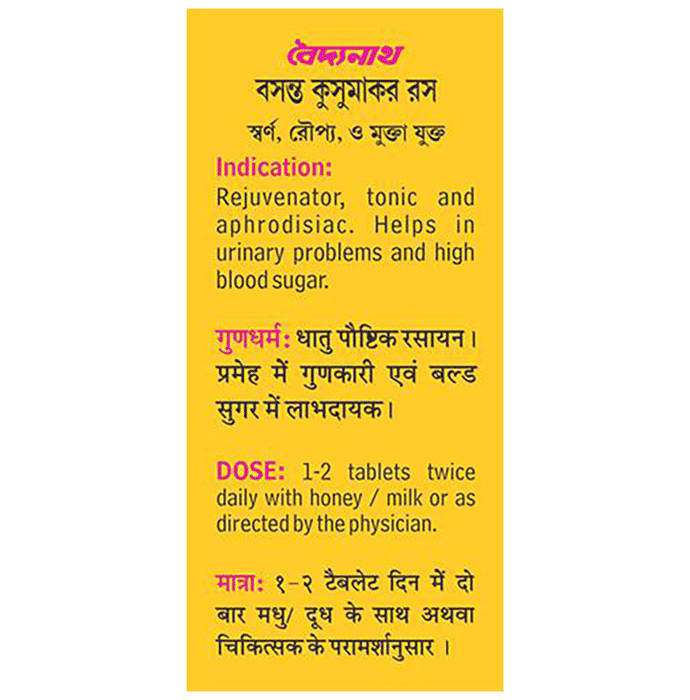 বৈদ্যনাথ
বসন্ত কুসুমাকর রস
স্বর্ণ, রৌপ্য, ও মুক্তা যুক্ত
Indication:
Rejuvenator, tonic and
aphrodisiac. Helps in
urinary problems and high
blood sugar.
गुणधर्म: धातु पौष्टिक रसायन।
प्रमेह में गुणकारी एवं बल्ड
सुगर में लाभदायक।
DOSE: 1-2 tablets twice
daily with honey / milk or as
directed by the physician.
मात्रा: १-२ टैबलेट दिन में दो
बार मधु/ दूध के साथ अथवा
चिकित्सक के परामर्शानुसार।